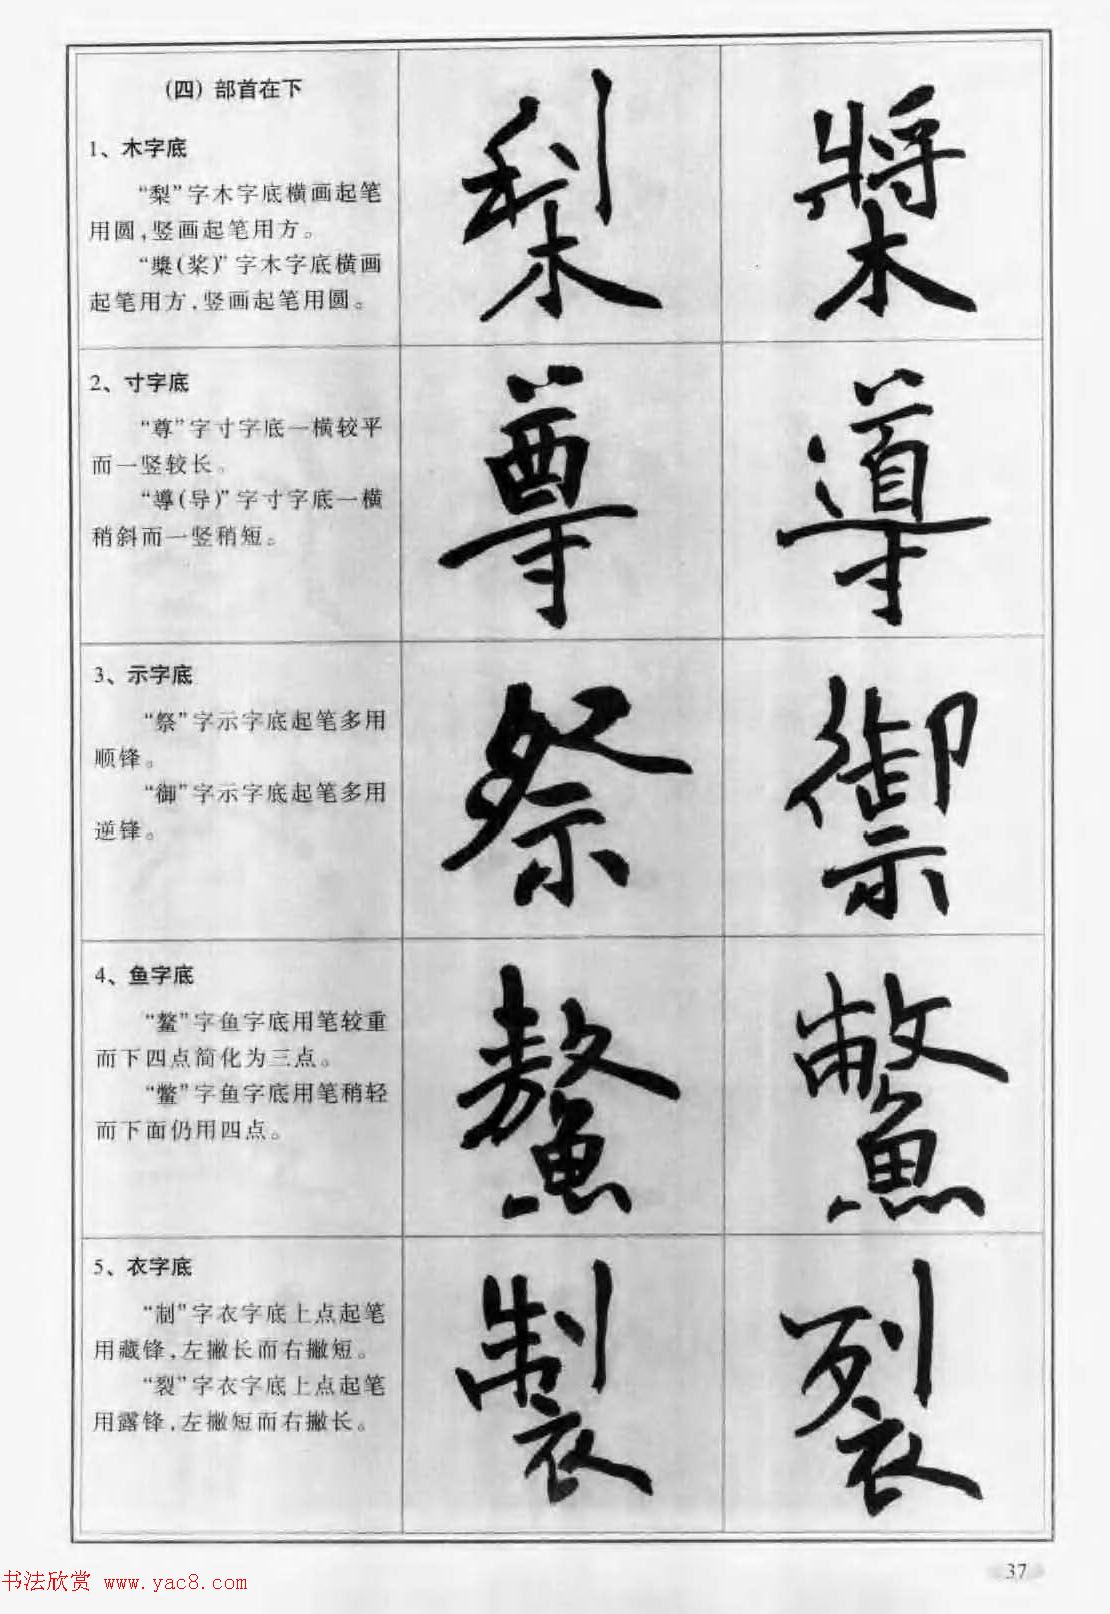 (四) 部首在下
1、木字底
“梨”字木字底横画起笔
用圆,竖画起笔用方。
“槳(桨)”字木字底横画
起笔用方,竖画起笔用圆。
梨 槳
2、寸字底
“尊”字寸字底一横较平
而一竖较长。
“導(导)”字寸字底一横
稍斜而一竖稍短。
尊 導
3、示字底
“祭”字示字底起笔多用
顺锋。
“御”字示字底起笔多用
逆锋。
祭 禦
4、鱼字底
“鳌”字鱼字底用笔较重
而下四点简化为三点。
“鳖”字鱼字底用笔稍轻
而下面仍用四点。
鰲 鱉
5、衣字底
“制”字衣字底上点起笔
用藏锋,左撇长而右撇短。
“裂”字衣字底上点起笔
用露锋,左撇短而右撇长。
製 裂
37
书法欣赏 www.yac8.com